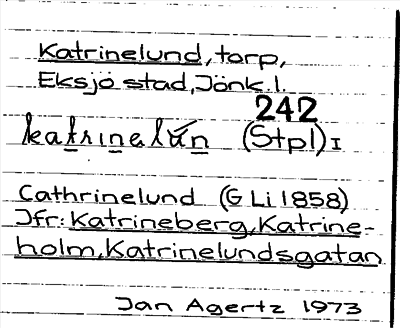 Katrinelund, torp,
Eksjö stad, Jönk.l.
242
katrinelún (Stpl) I
Cathrinelund (G Li 1858)
Jfr: Katrineberg, Katrine-
holm, Katrinelundsgatan
Jan Agertz 1973